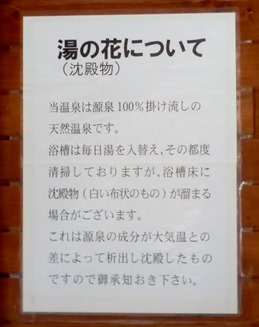 湯の花について
(沈殿物)
当温泉は源泉100%掛け流しの
天然温泉です。
浴槽は毎日湯を入替え、その都度
清掃しておりますが、浴槽床に
沈殿物(白い布状のもの)が溜まる
場合がございます。
これは源泉の成分が大気温との
差によって析出し沈殿したもの
ですので御承知おき下さい。